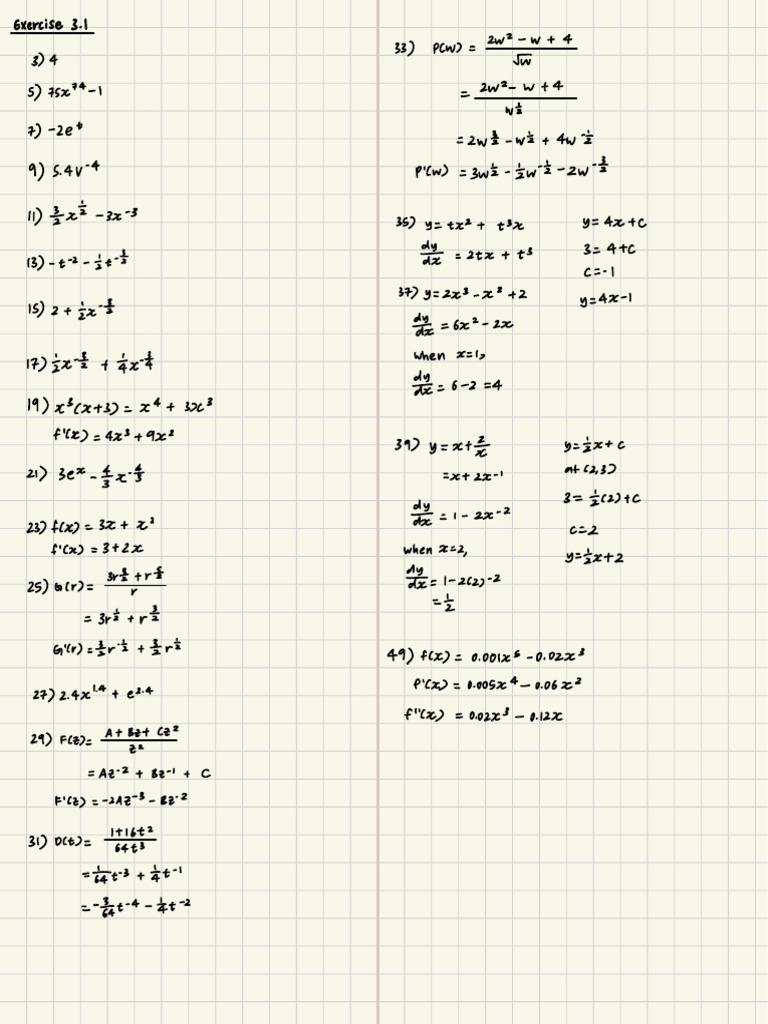 Exercise 3.1
3) 4
5) 75x^74 - 1
7) -2e^t
9) 5.4v^-4
11) 3/2 x^1/2 - 3x^-3
13) -t^-2 - 1/2 t^-3/2
15) 2 + 1/2 x^-3/2
17) 1/2 x^-3/2 + 1/4 x^-3/4
19) x^3(x+3) = x^4 + 3x^3
f'(x) = 4x^3 + 9x^2
21) 3e^x - 4/3 x^-4/3
23) f(x) = 3x + x^2
f'(x) = 3 + 2x
25) G(r) = (3r^3/2 + r^5/2)/r
= 3r^1/2 + r^3/2
G'(r) = 3/2 r^-1/2 + 3/2 r^1/2
27) 2.4x^1.4 + e^2.4
29) F(z) = (A + Bz + Cz^2)/z^2
= Az^-2 + Bz^-1 + C
F'(z) = -2Az^-3 - Bz^-2
31) D(t) = (1+16t^2)/64t^3
= 1/64 t^-3 + 1/4 t^-1
= -3/64 t^-4 - 1/4 t^-2
33) P(w) = (2w^2 - w + 4)/√w
= (2w^2 - w + 4)/w^1/2
= 2w^3/2 - w^1/2 + 4w^-1/2
P'(w) = 3w^1/2 - 1/2 w^-1/2 - 2w^-3/2
35) y = tx^2 + t^3x
dy/dx = 2tx + t^3
37) y = 2x^3 - x^2 + 2
dy/dx = 6x^2 - 2x
when x=1,
dy/dx = 6 - 2 = 4
y = 4x + c
3 = 4 + c
c = -1
y = 4x - 1
39) y = x + 2/x
= x + 2x^-1
dy/dx = 1 - 2x^-2
when x=2,
dy/dx = 1 - 2(2)^-2
= 1/2
y = 1/2 x + c
at (2,3)
3 = 1/2 (2) + c
c = 2
y = 1/2 x + 2
49) f(x) = 0.001x^5 - 0.02x^3
f'(x) = 0.005x^4 - 0.06x^2
f''(x) = 0.02x^3 - 0.12x